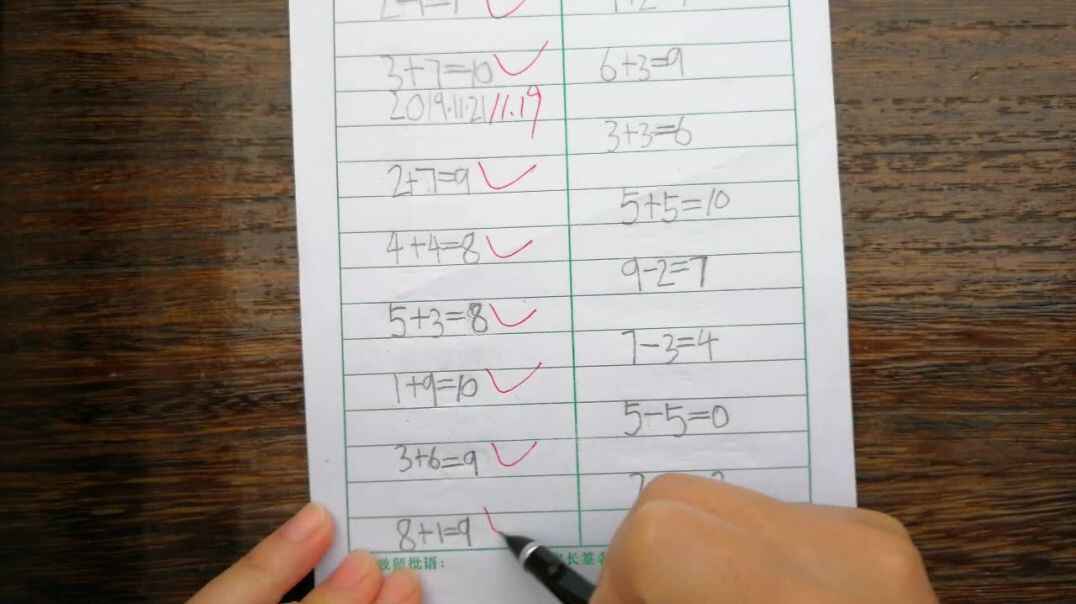 3+7=10
2019.11.21 11.19
2+7=9
4+4=8
5+3=8
1+9=10
3+6=9
8+1=9
6+3=9
3+3=6
5+5=10
9-2=7
7-3=4
5-5=0
教师批语:
长签名